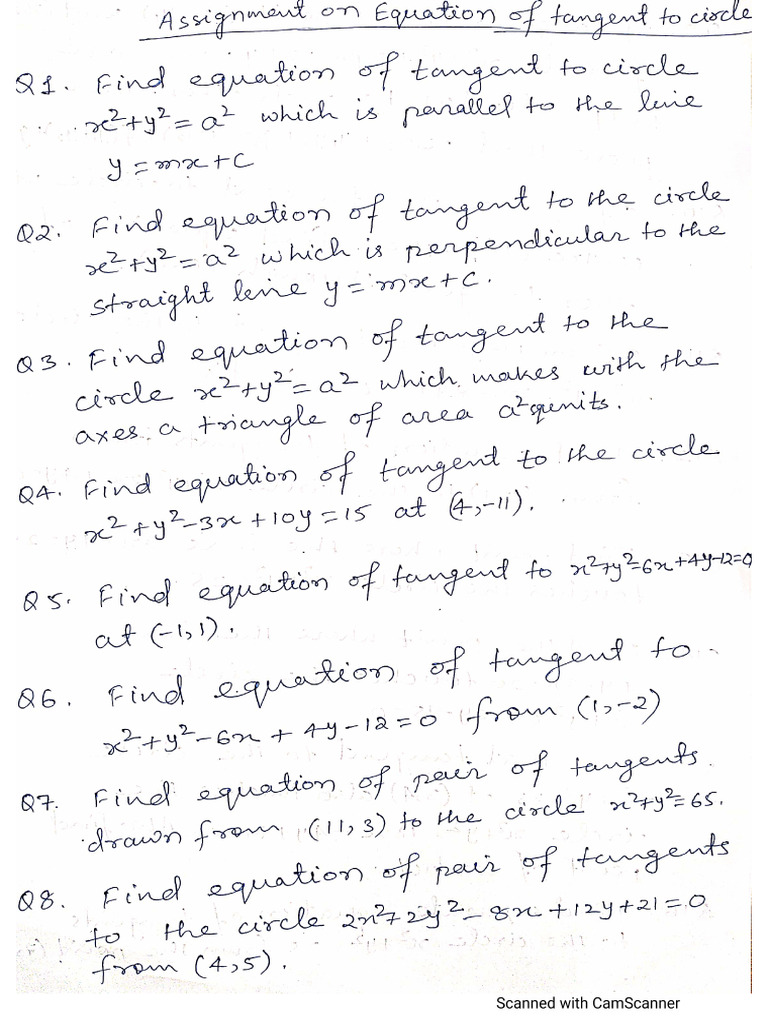 Assignment on Equation of tangent to circle
Q1. Find equation of tangent to circle
x²+y²=a² which is parallel to the line
y=mx+c
Q2. Find equation of tangent to the circle
x²+y²=a² which is perpendicular to the
straight line y=mx+c.
Q3. Find equation of tangent to the
circle x²+y²=a² which makes with the
axes a triangle of area a² squnits.
Q4. Find equation of tangent to the circle
x²+y²-3x+10y=15 at (4,-11).
Q5. Find equation of tangent to x²+y²-6x+4y-12=0
at (-1,1).
Q6. Find equation of tangent to
x²+y²-6x+4y-12=0 from (1,-2)
Q7. Find equation of pair of tangents
drawn from (11,3) to the circle x²+y²=65.
Q8. Find equation of pair of tangents
to the circle 2x²+2y²-8x+12y+21=0
from (4,5).
Scanned with CamScanner